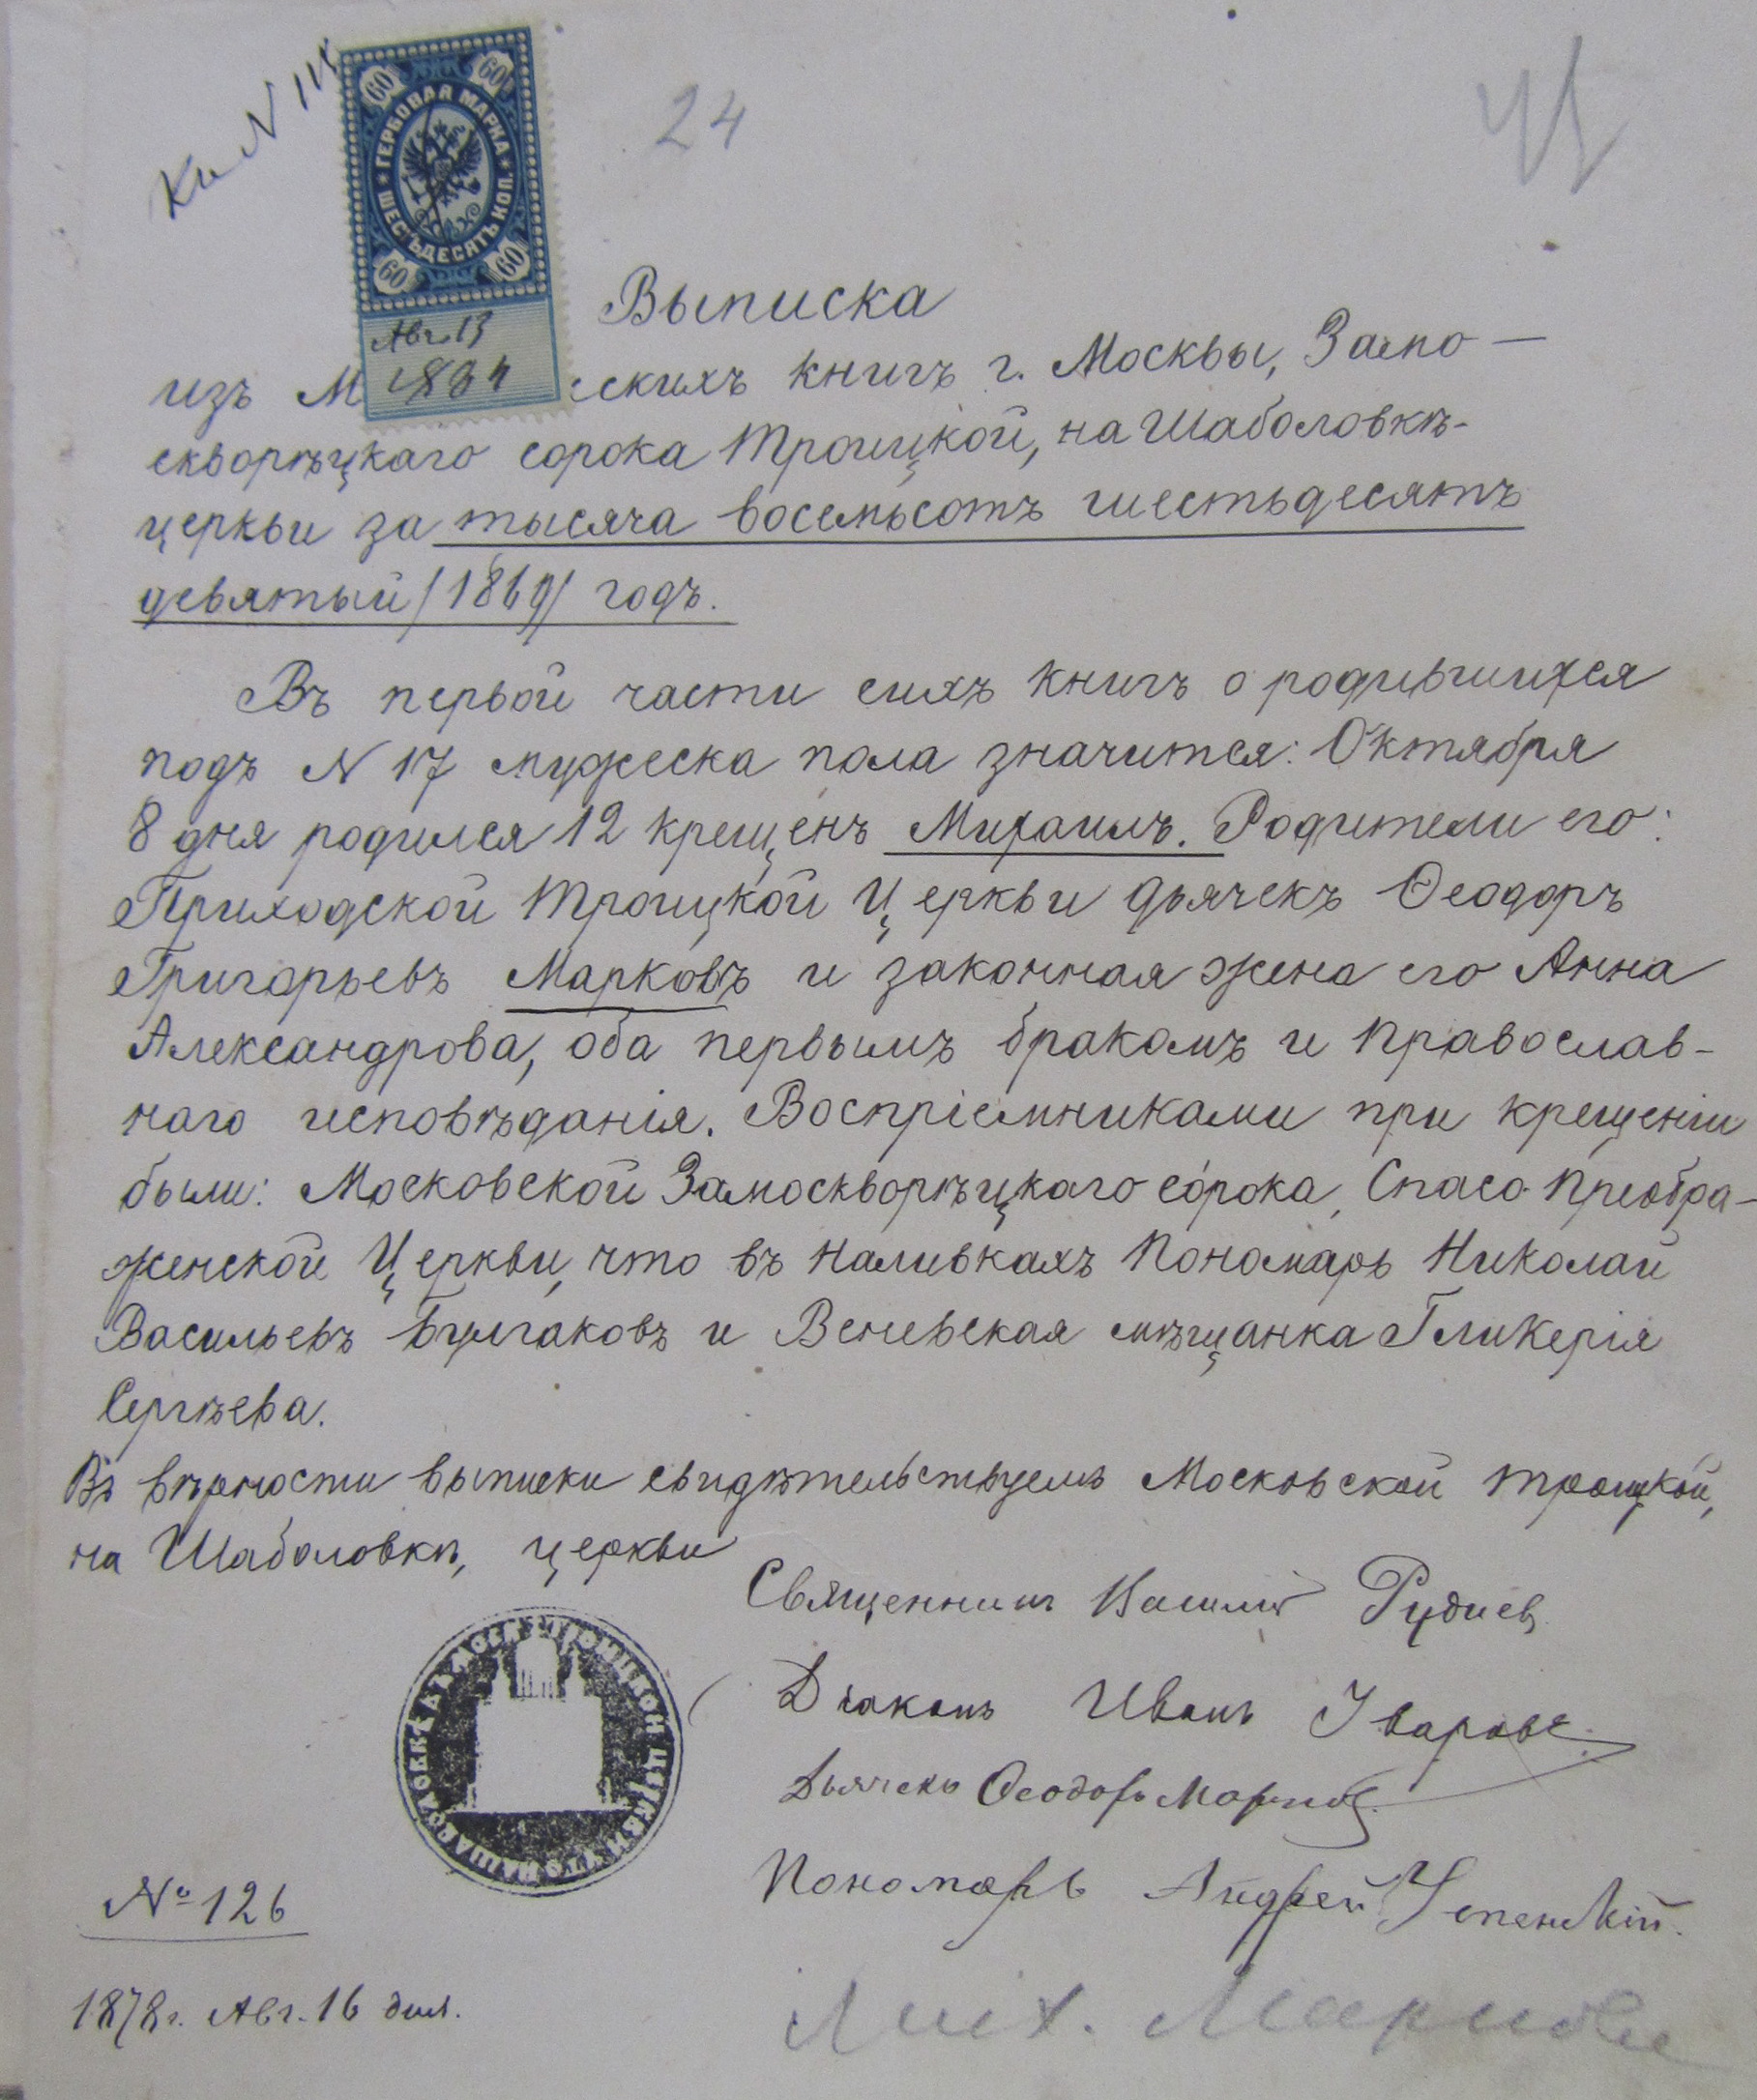 Ки N
24
ГЕРБОВАЯ МАРКА
ШЕСТЬДЕСЯТЪ КОП.
60 60
60 60
Авг. 13
1884
Выписка
изъ М скихъ книгъ г. Москвы, Замо-
скворѣцкаго сорока Троицкой, на Шаболовкѣ-
церкви за тысяча восемьсотъ шестьдесятъ
девятый /1869/ годъ.
Въ первой части сихъ книгъ о родившихся
подъ N 17 мужеска пола значится: Октября
8 дня родился 12 крещенъ Михаилъ. Родители его:
Приходской Троицкой Церкви дьячекъ Ѳеодоръ
Григорьевъ Марковъ и законная жена его Анна
Александрова, оба первымъ бракомъ и Православ-
наго исповѣданія. Воспріемниками при крещеніи
были: Московской Замоскворѣцкаго сорока, Спасо-Преобра-
женской Церкви, что въ Наливкахъ Пономарь Николай
Васильевъ Булгаковъ и Веневская мѣщанка Гликерія
Сергѣева.
Въ вѣрности выписки свидѣтельствуемъ Московской Троицкой,
на Шаболовкѣ, церкви
Священникъ Василій Рудневъ
Діаконъ Иванъ
Дьячекъ Ѳеодоръ Марковъ.
Пономарь Андрей Успенскій.
№ 126
1878 г. Авг. 16 дня.
Мих. Марковъ